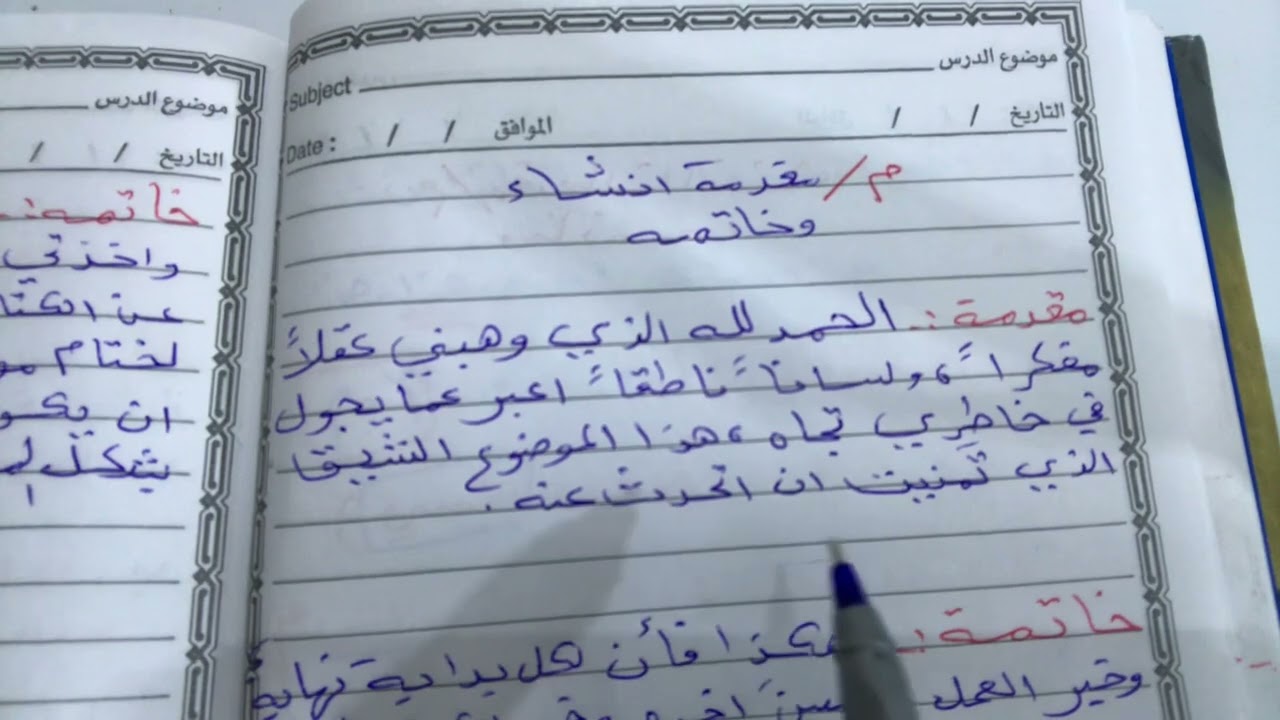 موضوع الدرس
Subject
التاريخ / / الموافق / / Date :
م/ مقدمة انشاء
وخاتمه
مقدمة :. الحمد لله الذي وهبني عقلاً
مفكراً، ولساناً ناطقاً اعبر عما يجول
في خاطِري تجاه، هذا الموضوع الشيق
الذي تمنيت ان اتحدث عنه .
خاتمة :. هكذا فأن لكل بداية نهاية
وخير العمل
موضوع الدرس
التاريخ / /
خاتمه :.
واخذتي
عن
لختام
ان
يشكل